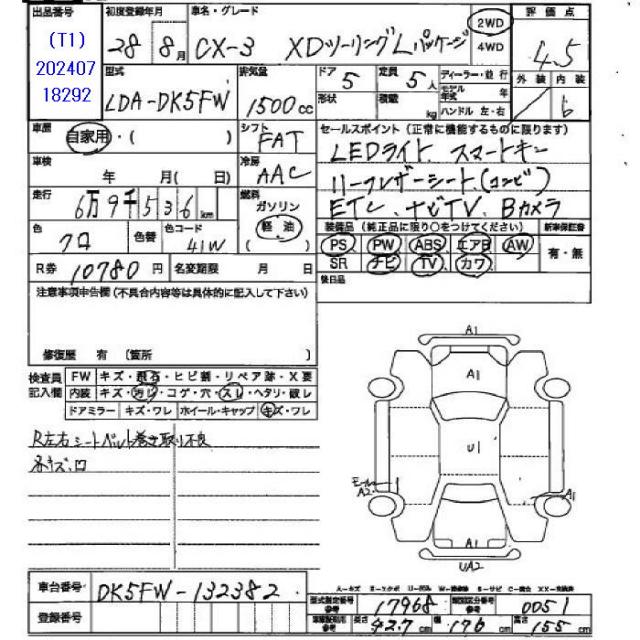 出品番号
(T1)
202407
18292
初度登録年月
28年 8月
車名・グレード
CX-3 XDツーリングLパッケージ
2WD
4WD
評価点
4.5
外装 内装
/ 6
型式
LDA-DK5FW
排気量
1500cc
ドア
5
定員
5人
形状
積載
kg
ディーラー・並行
モデル年式
ハンドル 左・右
車歴
自家用・( )
シフト
FAT
セールスポイント(正常に機能するものに限ります)
LEDライト スマートキー
ハーフレザーシート(コンビ)
ETC、ナビTV、Bカメラ
車検
年 月( 日)
冷房
AAC
走行
6万9千536km
燃料
ガソリン
軽油
色
クロ
色替
色コード
41W
装備品(純正品に限り○をつけてください)
新車保証書
PS PW ABS エアB AW
SR ナビ TV カワ
有・無
後日品
R券
10780円
名変期限
月 日
注意事項申告欄(不具合内容等は具体的に記入して下さい)
修復歴 有〔箇所 〕
検査員
記入欄
FW キズ・飛石・ヒビ割・リペア跡・X要
内装 キズ・カレ・コゲ・穴・スレ・ヘタリ・破レ
ドアミラー キズ・ワレ ホイール・キャップ キズ・ワレ
R左右シートベルト巻き取り不良
A1
A1
U1
モール
A2
A1
A1
UA2
車台番号
DK5FW-132382
登録番号
型式指定番号
参考
17968
類別区分番号
参考
0051
車検証記載
参考
長さ
427cm
幅
176cm
高さ
155cm